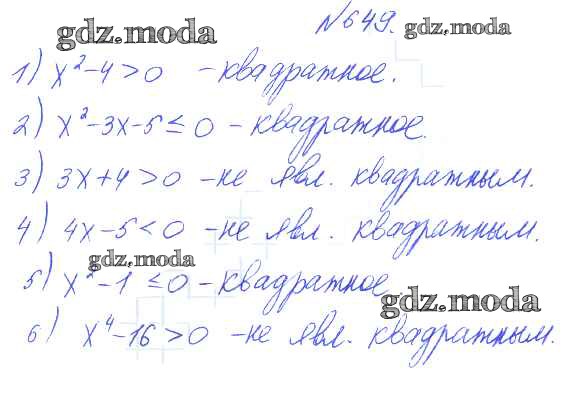 №649.
gdz.moda
gdz.moda
1) x²-4>0 -квадратное.
2) x²-3x-5≤0 - квадратное.
3) 3x+4>0 -не явл. квадратным.
4) 4x-5<0 -не явл. квадратным.
gdz.moda
5) x²-1≤0 - квадратное
gdz.moda
6) x⁴-16>0 -не явл. квадратным.